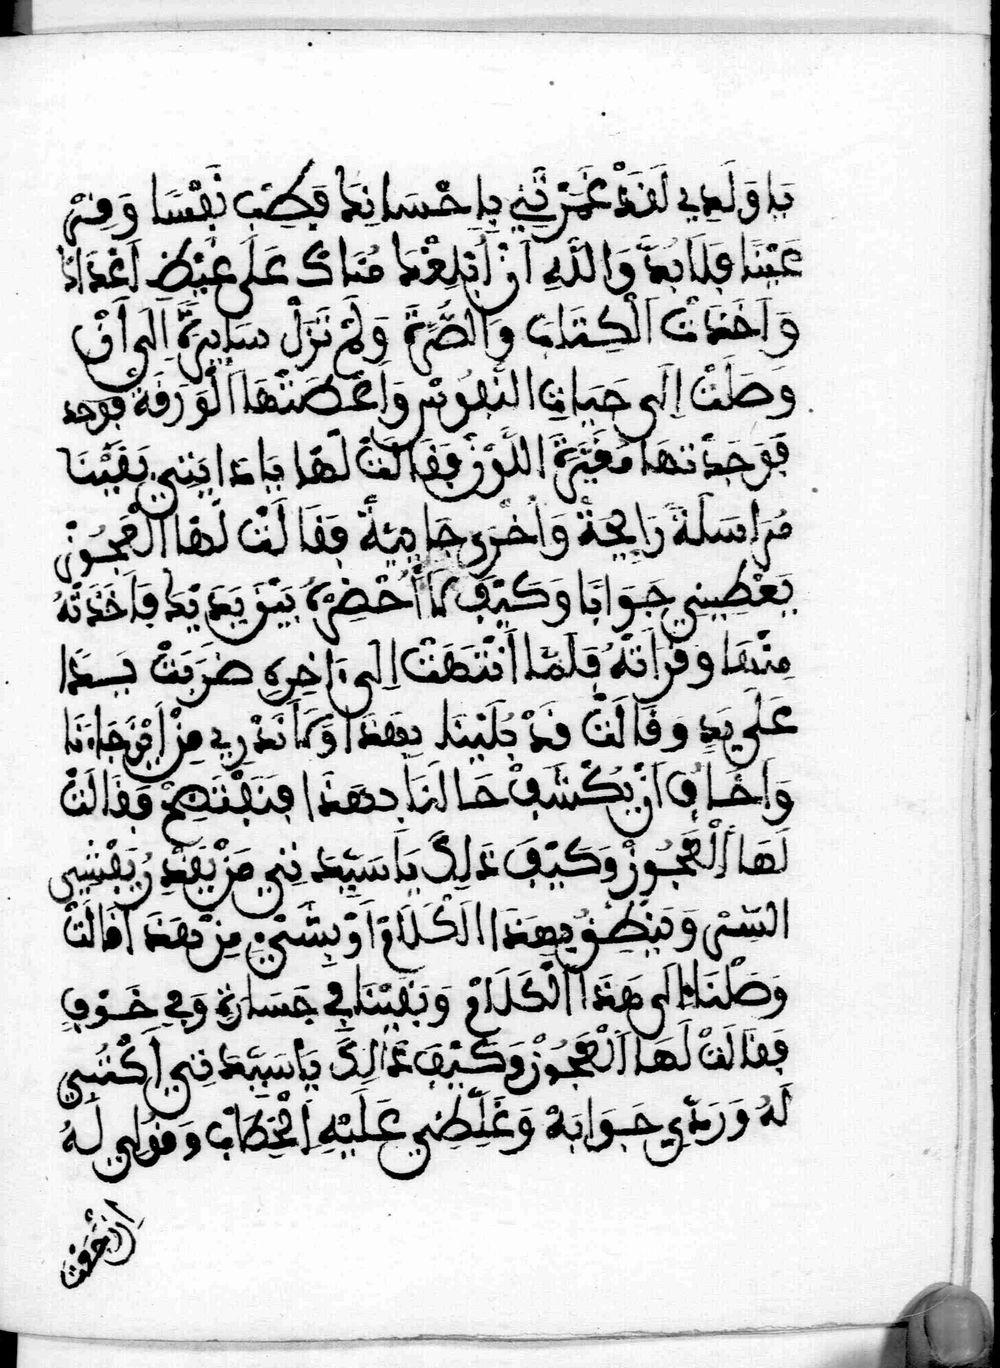 يا ولدي لقد غمرتني بإحسانك فطب نفسا وقر
عينا فلا بد والله أن أبلغك مناك على غيظ أعداك
وأخذت الكتاب والصرة ولم تزل سايرة إلى أن
وصلت إلى حيات النفوس وأعطتها الورقة فوجد
فوجدتها مغيرة اللون فقالت لها يا دايتي بقينا
مراسلة رايحة وأخرى جايئة فقالت لها العجوز
يعطيني جوابا وكيف لا أحضره بين يديك فأخذته
منها وقرأته فلما أنتهت إلى ءاخره ضربت يدا
على يد وقالت قد بلينا بهذا ولا ندري من أين جاءنا
وأخاف أن يكشف حالنا بهذا فنفتضح فقالت
لها العجوز وكيف ذلك يا سيدتي من يقدر يفشي
السر وينطق بهذا الكلام أو بشيء من هذا قالت
وصلنا إلى هذا الكلام وبقينا في جسارة وفي خوف
فقالت لها العجوز وكيف ذالك يا سيدتي أكتبي
له وردي جوابه وغلظي عليه الخطاب وقولي له
إن خفت